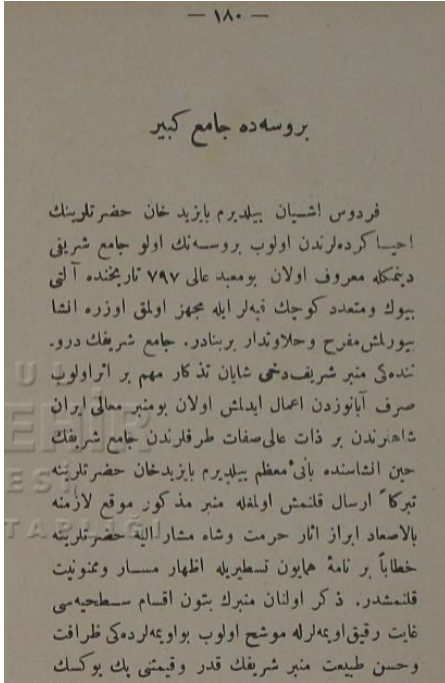 — ١٨٠ —
بروسه‌ده جامع كبير
فردوس اشيان ييلديرم بايزيد خان حضرتلرينك
احيا كرده‌لرندن اولوب بروسه‌نك اولو جامع شريفى
دينمكله معروف اولان بومعبد عالى ٧٩٧ تاريخنده آلتى
بيوك ومتعدد كوچك قبه‌لر ايله مجهز اولمق اوزره انشا
بيورلمش مفرح وحلاوتدار بربنادر. جامع شريفك درو.
ننده‌كى منبر شريف‌دخى شايان تذكار مهم بر اثراولوب
صرف آبانوزدن اعمال ايدلمش اولان بومنبر معالى ايران
شاهلرندن بر ذات عالى‌صفات طرفلرندن جامع شريفك
حين انشاسنده بانئ معظم ييلديرم بايزيدخان حضرتلرينه
تبركاً ارسال قلنمش اولمغله منبر مذكور موقع لازمنه
بالاصعاد ابراز اثار حرمت وشاه مشار اليه حضرتلرينه
خطاباً بر نامۀ همايون تسطيريله اظهار مسار وممنونيت
قلنمشدر. ذكر اولنان منبرك بتون اقسام سطحيه‌سى
غايت رقيق‌اويمه‌لرله موشح اولوب بواويمه‌لرده‌كى ظرافت
وحسن طبيعت منبر شريفك قدر وقيمتنى پك يوكسك
UL
EHİR
EST
TAPLIĞI